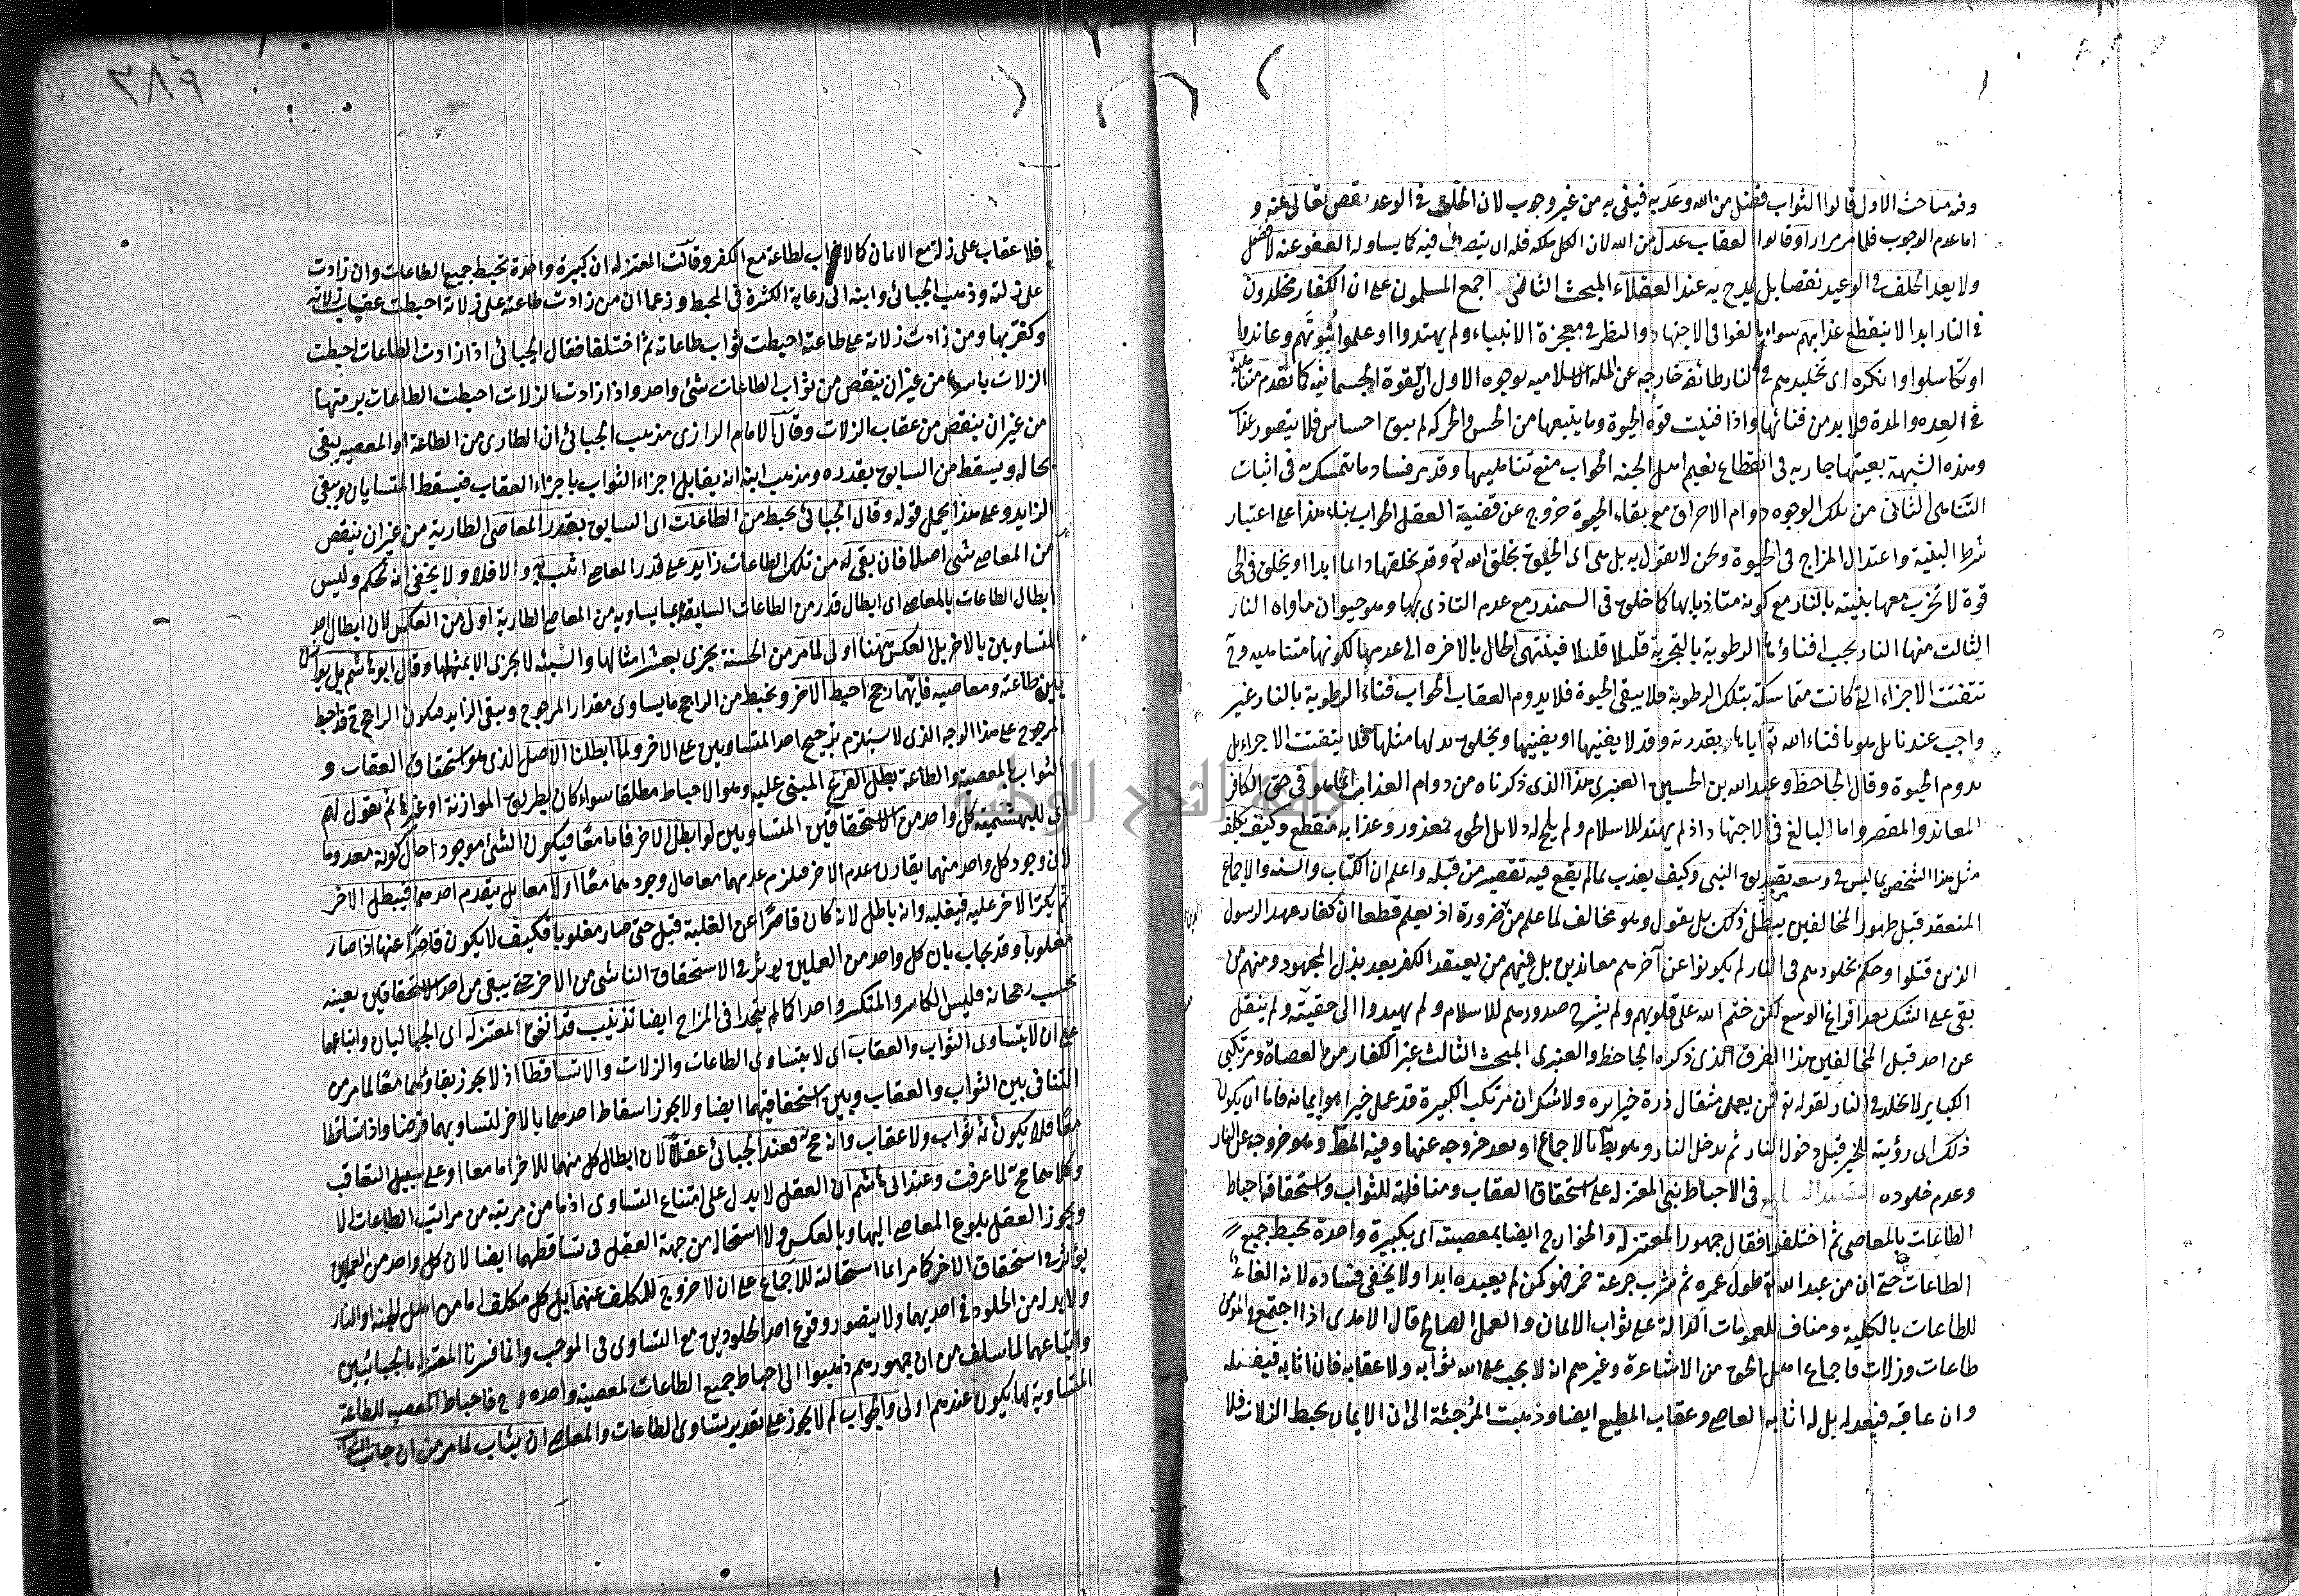 وفيه مباحث الاول قالوا الثواب فضل من الله وعد به فيفى به من غير وجوب لان الخلف فى الوعد نقص تعالى عنه و
اما عدم الوجوب فلما مر مرارا وقالوا العقاب عدل من الله لان الكل ملكه فله ان يتصرف فيه كما يشاء وله العفو عنه لانه فضل
ولا يعد الخلف فى الوعيد نقصا بل يمدح به عند العقلاء المبحث الثانى اجمع المسلمون على ان الكفار مخلدون
فى النار ابدا لا ينقطع عذابهم سواء بالغوا فى الاجتهاد والنظر فى معجزة الانبياء ولم يهتدوا او علموا نبوتهم وعاندوا
او تكاسلوا وانكره اى تخليدهم فى النار طائفة خارجة عن الملة الاسلامية بوجوه الاول ان القوة الجسمانية كما تقدم متناهية
فى العدة والمدة فلا بد من فنائها واذا فنيت قوة الحيوة وما يتبعها من الحس والحركة لم يبق احساس فلا يتصور عذاب
وهذه الشبهة بعينها جارية فى انقطاع نعيم اهل الجنة الجواب منع تناهيها وقد مر فساد ما تمسك به فى اثبات
التناهى الثانى من تلك الوجوه دوام الاحراق مع بقاء الحيوة خروج عن قضية العقل الجواب بناء هذا على اعتبار
شرط البنية واعتدال المزاج فى الحيوة ونحن لا نقول به بل هى اى الحيوة بخلق الله تع وقد يخلقها دائما ابدا او يخلق فى الحى
قوة لا تخرب معها بنيته بالنار مع كونه متأذيا بها كما خلق فى السمندر مع عدم التأذى بها وهو حيوان ماواه النار
الثالث منها النار يجب افناؤها الرطوبة بالتجربة قليلا قليلا فينتهى الحال بالاخرة الى عدمها لكونها متناهية وح
تتفتت الاجزاء التى كانت متماسكة بتلك الرطوبة فلا يبقى الحيوة فلا يدوم العقاب الجواب فناء الرطوبة بالنار غير
واجب عندنا بل هو بافناء الله تع اياها بقدرته وقد لا يفنيها او يفنيها ويخلق بدلها مثلها فلا يتفتت الاجزاء بل
يدوم الحيوة وقال الجاحظ وعبد الله بن الحسين العنبرى هذا الذى ذكرناه من دوام العذاب انما هو فى حق الكافر
المعاند والمقصر واما المبالغ فى الاجتهاد اذ لم يهتد للاسلام ولم يلح له دلايل الحق فمعذور وعذابه منقطع وكيف يكلف
مثل هذا الشخص بما ليس فى وسعه من تصديق النبى وكيف يعذب بما لم يقع فيه تقصير من قبله واعلم ان الكتاب والسنة والاجماع
المنعقد قبل ظهور المخالفين يبطل ذلك بل نقول وهو مخالف لما علم من ضرورة اذ يعلم قطعا ان كفار عهد الرسول
الذين قتلوا وحكم بخلودهم فى النار لم يكونوا عن آخرهم معاندين بل منهم من يعتقد الكفر بعد بذل المجهود ومنهم من
بقى على الشك بعد افراغ الوسع لكن ختم الله على قلوبهم ولم يشرح صدورهم للاسلام ولم يهيدوا الى حقيته ولم ينقل
عن احد قبل المخالفين هذا الفرق الذى ذكره الجاحظ والعنبرى المبحث الثالث غير الكفار من العصاة ومرتكبى
الكباير لا يخلد فى النار لقوله تع فمن يعمل مثقال ذرة خيرا يره ولا شك ان مرتكب الكبيرة قد عمل خيرا هو ايمانه فاما ان يكون
ذلك اى رؤيته للخير قبل دخول النار ثم يدخل النار وهو بط بالاجماع او بعد خروجه عنها وفيه المط وهو خروجه عن النار
وعدم خلوده فى الاحباط بنى المعتزلة على استحقاق العقاب ومنافاته للثواب واستحقاقه احباط
الطاعات بالمعاصى ثم اختلفوا فقال جمهور المعتزلة والخوارج ايضا بمعصيته اى بكبيرة واحدة تحبط جميع
الطاعات حتى ان من عبد الله تع طول عمره ثم شرب جرعة خمر فهو كمن لم يعبده ابدا ولا يخفى فساده لانه الغاء
للطاعات بالكلية ومناف للعمومات الدالة على ثواب الايمان والعمل الصالح قال الامدى اذا اجتمع فى المؤمن
طاعات وزلات فاجماع اهل الحق من الاشاعرة وغيرهم انه لا يجب على الله ثوابه ولا عقابه فان اثابه فبفضله
وان عاقبه فبعدله بل له اثابة العاصى وعقاب المطيع ايضا وذهبت المرجئة الى ان الايمان يحبط الزلات فلا
٣٨٩
فلا عقاب على زلة مع الايمان كما لا ثواب لطاعة مع الكفر وقالت المعتزلة ان كبيرة واحدة تحبط جميع الطاعات وان زادت
على زلته وذهب الجبائى وابنه الى رعاية الكثرة فى المحبط وزعما ان من زادت طاعته على زلاته احبطت عقاب زلاته
وكفرتها ومن زادت زلاته على طاعته احبطت ثواب طاعاته ثم اختلفا فقال الجبائى اذا زادت الطاعات احبطت
الزلات باسرها من غير ان ينقص من ثواب الطاعات شئ واحد واذا زادت الزلات احبطت الطاعات برمتها
من غير ان ينقص من عقاب الزلات وقال الامام الرازى مذهب الجبائى ان الطارى من الطاعة او المعصية يبقى
بحاله ويسقط من السابق بقدره ومذهب ابنه انه يقابل اجزاء الثواب باجزاء العقاب فيسقط المتساويان ويبقى
الزايد وعلى هذا يحمل قوله وقال الجبائى يحبط من الطاعات اى السابق بقدر المعاصى الطارية من غير ان ينقص
من المعاصى شئ اصلا فان بقى له من تلك الطاعات زايد على قدر المعاصى اثيب به والا فلا ولا يخفى انه تحكم وليس
ابطال الطاعات بالمعاصى اى ابطال قدر من الطاعات السابقة بما يساويه من المعاصى الطارية اولى من العكس لان ابطال احد
المتساويين بالاخر بل العكس ههنا اولى لما مر من الحسنة يجزى بعشر امثالها والسيئة لا يجزى الا بمثلها وقال ابو هاشم بل يوازن
بين طاعته ومعاصيه فايهما رجح احبط الاخر ويحبط من الراجح ما يساوى مقدار المرجوح ويبقى الزايد فيكون الراجح ح قد احبط
المرجوح على هذا الوجه الذى لا يستلزم ترجيح احد المتساويين على الاخر ولما ابطلنا الاصل الذى هو استحقاق العقاب و
الثواب بالمعصية والطاعة بطل الفرع المبنى عليه وهو الاحباط مطلقا سواء كان بطريق الموازنة او غيرها ثم نقول لهم
اى للبهشمية كل واحد من الاستحقاقين المتساويين لو ابطل الاخر فاما معا فيكون الشئ موجودا حال كونه معدوما
لان وجود كل واحد منهما يقارن عدم الاخر فيلزم عدمهما معا حال وجودهما معا او لا معا بل يتقدم احدهما فيبطل الاخر
ثم يكر الاخر عليه فيغلبه وانه باطل لانه كان قاصرا عن الغلبة قبل حتى صار مغلوبا فكيف لا يكون قاصرا عنها اذا صار
مغلوبا وقد يجاب بان كل واحد من العملين يؤثر فى الاستحقاق الناشى من الاخر حتى يبقى من احد الاستحقاقين بعينه
بحسب رجحانه فليس الكاسر والمنكسر واحدا كما لم يتحدا فى المزاج ايضا تذنيب قد اتفق المعتزلة اى الجبائيان واتباعهما
على ان لا يتساوى الثواب والعقاب اى لا يتساوى الطاعات والزلات والا تساقطا اذ لا يجوز بقاؤهما معا لما مر من
التنافى بين الثواب والعقاب وبين استحقاقيهما ايضا ولا يجوز اسقاط احدهما بالاخر لتساويهما فرضا واذا تساقطا
معا فلا يكون ثمه ثواب ولا عقاب وانه مح فعند الجبائى عقلا لان ابطال كل منهما للاخر اما معا او على سبيل التعاقب
وكلاهما مح لما عرفت وعند ابى هاشم ان العقل لا يدل على امتناع التساوى اذ ما من مرتبة من مراتب الطاعات الا
ويجوز العقل بلوغ المعاصى اليها وبالعكس ولا استحالة من جهة العقل فى تساقطهما ايضا لان كل واحد من العملين
يؤثر فى استحقاق الاخر كما مر انما استحالته للاجماع على ان لا خروج للمكلف عنهما بل كل مكلف اما من اهل الجنة او النار
ولا بد له من الخلود فى احديهما ولا يتصور وقوع احد الخلودين مع التساوى فى الموجب وانما فسرنا المعتزلة بالجبائيين
واتباعهما لما سلف من ان جمهورهم ذهبوا الى احباط جميع الطاعات بمعصية واحدة وح فاحباط المعصية للطاعة
المتساوية لها يكون عندهم اولى والجواب لم لا يجوز على تقدير تساوى الطاعات والمعاصى ان يثاب لما مر من ان جانب الثواب
جامعة النجاح الوطنية